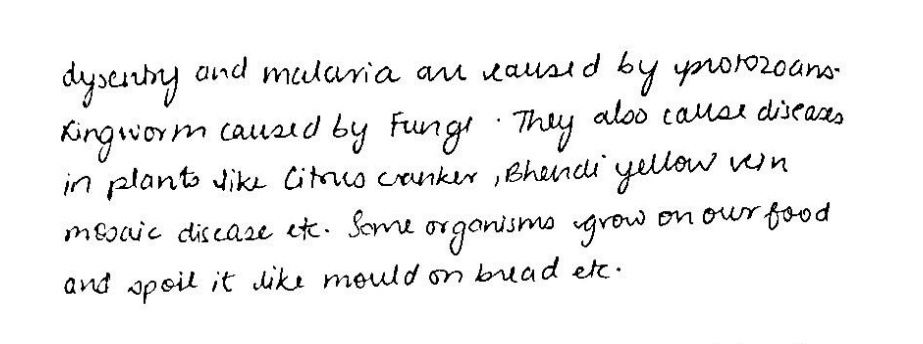 dysentry and malaria are caused by protozoans.
Ringworm caused by Fungi . They also cause diseases
in plants like Citrus cranker , Bhendi yellow vein
mosaic disease etc. Some organisms grow on our food
and spoil it like mould on bread etc.